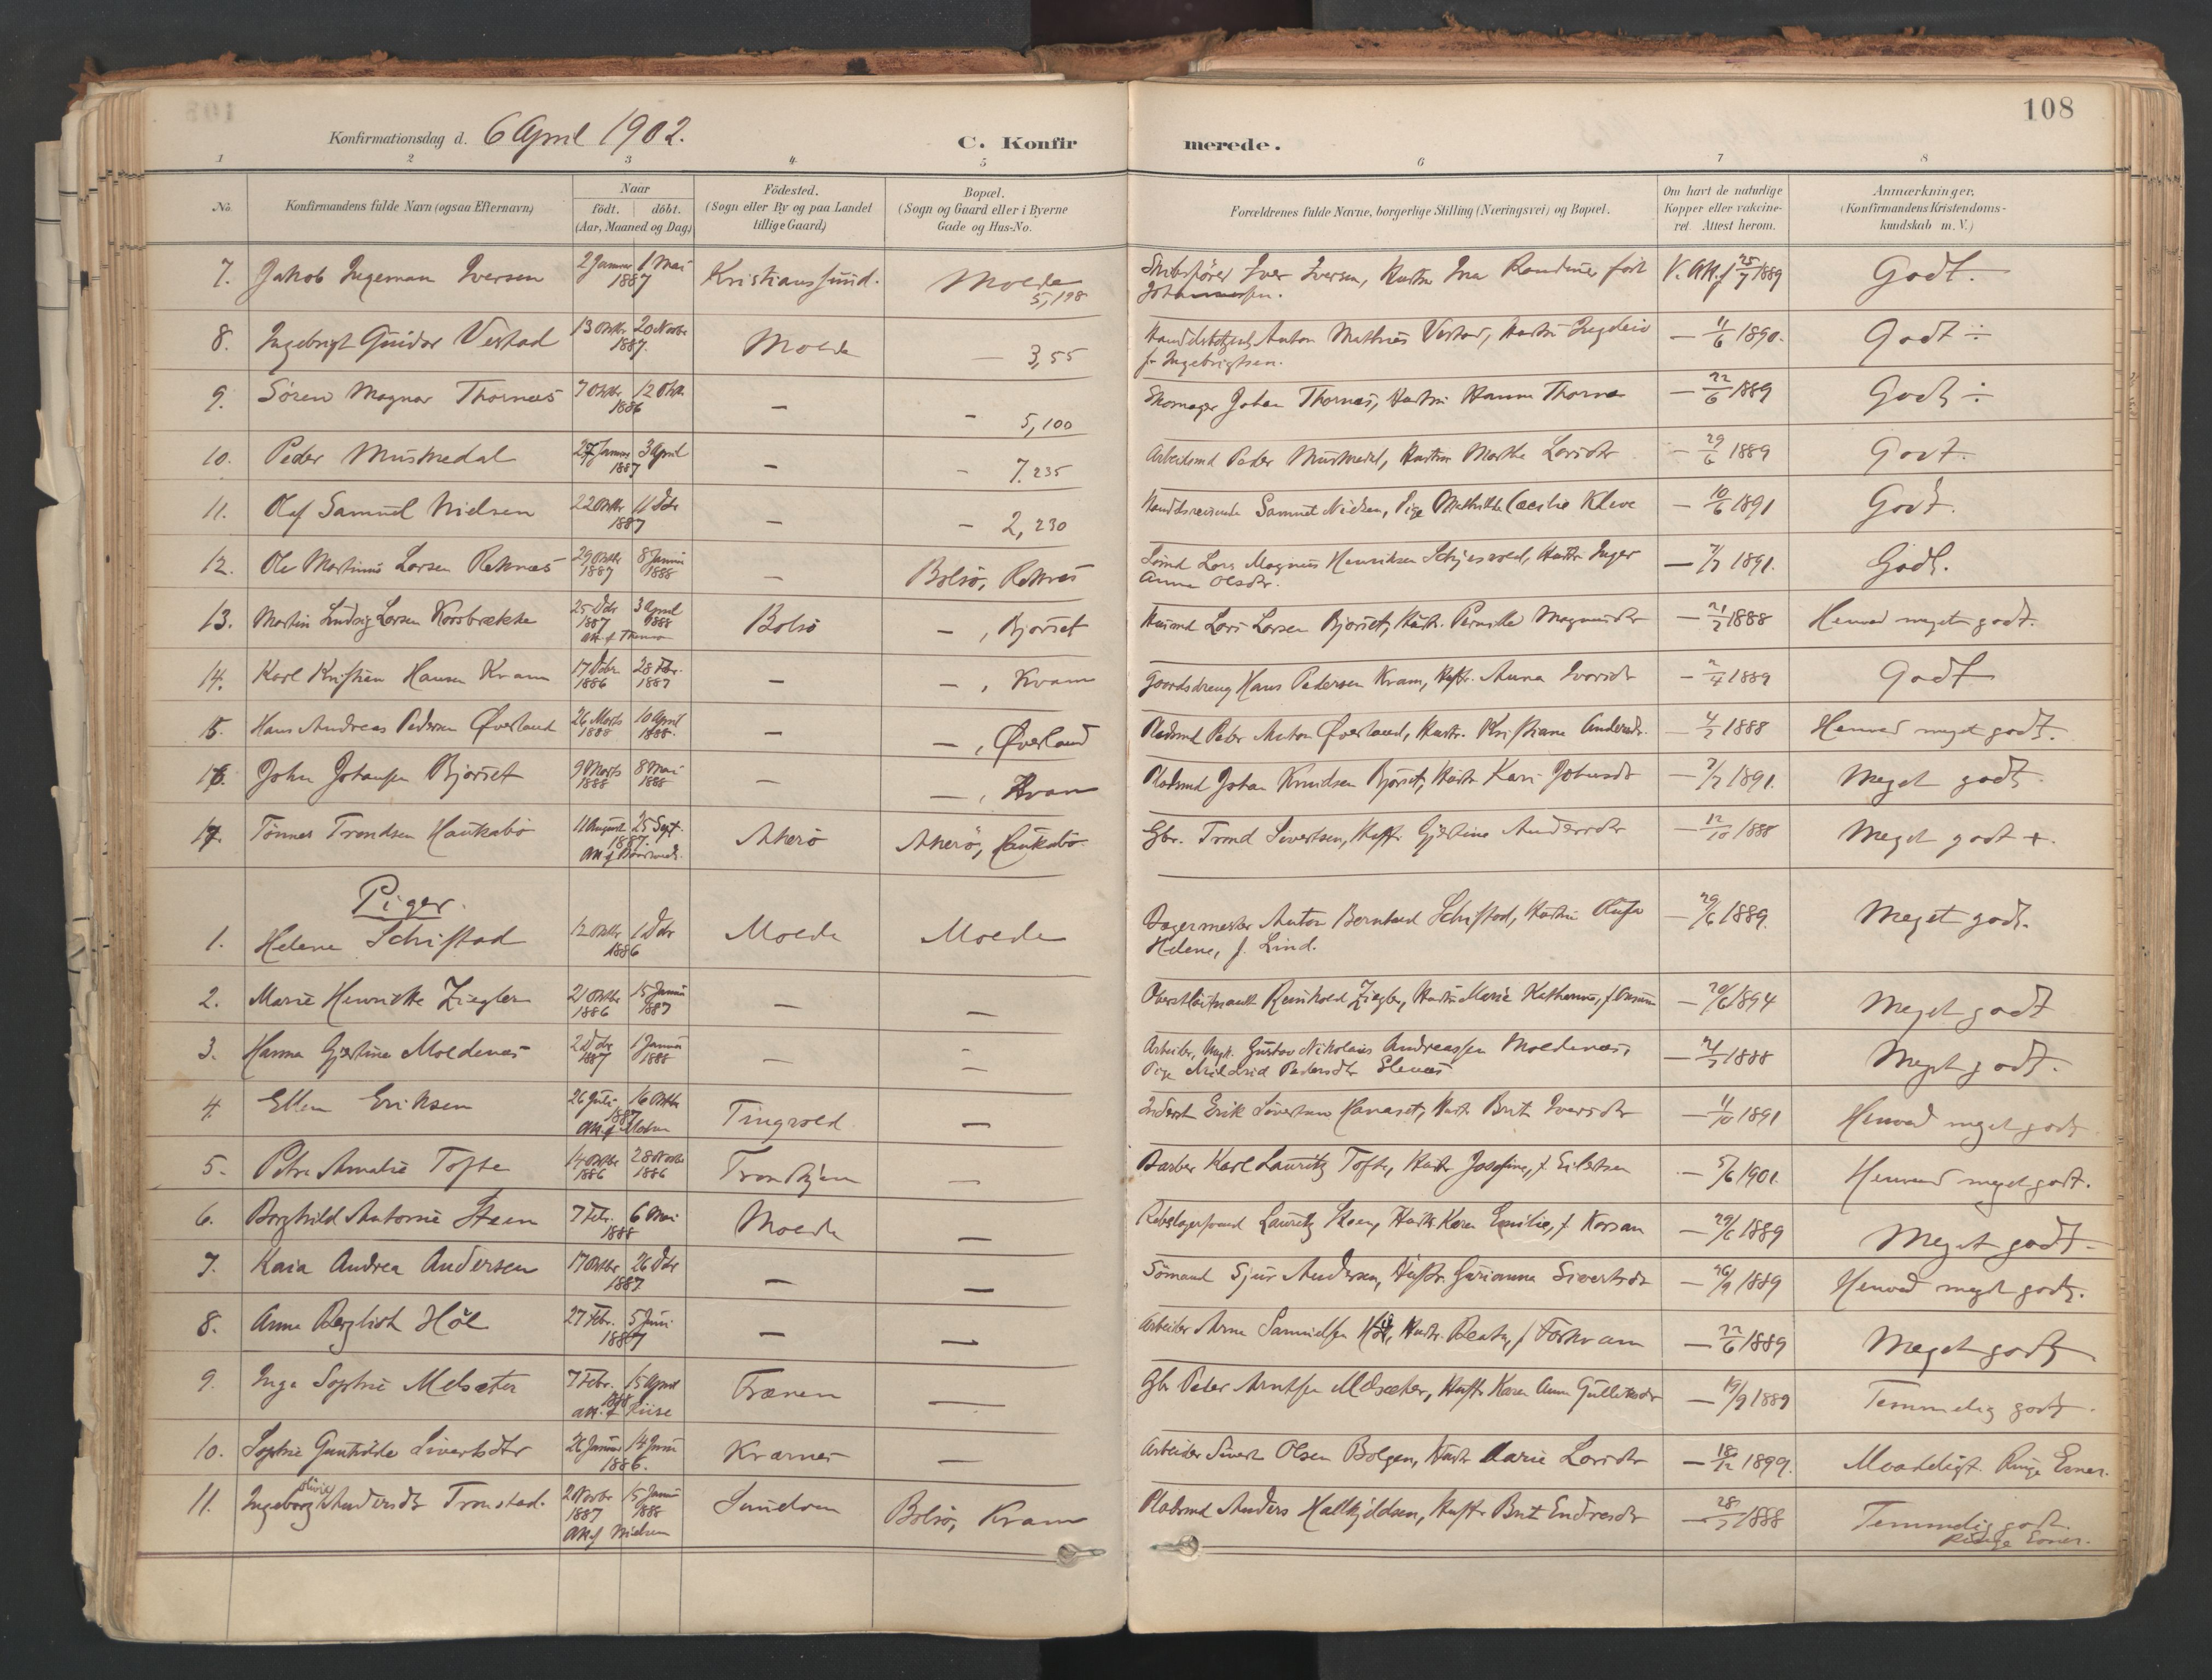 108
Konfirmationsdag d. 6 April 1902.
C. Konfirmerede.
1 2 3 4 5 6 7 8
No. Konfirmandens fulde Navn (ogsaa Efternavn) Naar födt. döbt. (Aar, Maaned og Dag) Födested. (Sogn eller By og paa Landet tillige Gaard) Bopæl. (Sogn og Gaard eller i Byerne Gade og Hus-No. Forældrenes fulde Navne, borgerlige Stilling (Næringsvei) og Bopæl. Om havt de naturlige Kopper eller vakcineret. Attest herom. Anmærkninger. (Konfirmandens Kristendomskundskab m. V.)
7. Jakob Ingeman Iversen 2 Januar 1 Mai 1887 Kristianssund. Molde 5,198 Iver Iversen, Hustru Ina 25/7 1889 Godt.
8. Ingebrigt Guidar Vestad 13 Oktbr 20 Novbr 1887. Molde — 3,55 Anton Mathias Vestad, Hustru f. Ingebrigtsen. — 11/6 1890. Godt ÷
9. Sören Magnar Thornæs 7 Oktbr 12 1886 — — 5,100 Skomager Johan Thornæs, Hustru Hanna Thornæs — 22/6 1889 Godt ÷
10. Peder Musmedal 27 Januar 3 April 1887 — — 7.235 Arbeidsmd Peder Musmedal, Hustru Marthe Larsdtr — 29/6 1889 Godt.
11. Olaf Samuel Nielsen 22 Oktbr 11 Dbr 1887 — — 2,230 Samuel Nielsen, Pige Mathilde Cecilie Kleve — 10/6 1891 Godt.
12. Ole Martinus Larsen Reknæs 29 Oktbr 1887 8 Januar 1888 — Bolsö, Reknæs Lars Magnus Henriksen, Hustru Inger Anna Olsdtr. — 7/7 1891. Godt.
13. Martin Ludvig Larsen Korsbrække 25 Dbr 1887 3 April 1888 Bolsö — , Bjorset Husmd Lars Larsen Bjorset, Hustr. Pernille Magnusdtr — 21/7 1888 Henved meget godt.
14. Karl Kristian Hansen Kvam 17 Dcbr. 1886 28 Febr. 1887 — — , Kvam Gaardsdreng Hans Pedersen Kvam, Hustr. Anna Iversdtr — 2/4 1889 Godt
15. Hans Andreas Pedersen Øverland 26 Marts 1888 10 April 1888. — — , Øverland Pladsmd Peder Anton Øverland, Hustr. Kristiane Andersdtr. — 4/7 1888 Henved meget godt.
16. John Johansen Bjorset 9 Marts 1888 8 Mai 1888 — — , Kvam Pladsmd Johan Knudsen Bjorset, Hustr Kari Johnsdtr — 7/7 1891. Meget godt
17. Tönner Trondsen Haukabö 11 August 25 Sept. 1887. Akerö Akerö, Haukabö. Gbr. Trond Sivertsen, Hustr. Gjertine Andersdtr — 12/10 1888 Meget godt +.
Piger.
1. Helene Schistad 12 Oktbr 1 Dbr 1886 Molde Molde Anton Bernhard Schistad, Hustru Helene, f. Lind. — 29/6 1889. Meget godt.
2. Marie Henriette Ziegler 21 Oktbr 1886 15 Januar 1887 — — Oberstløitnant Reinhold Ziegler, Hustru Marie Katharina, — 20/6 1894 Meget godt
3. Hanna Gjertine Moldenæs 2 Dbr 1887 1 Januar 1888 — — Arbeider, Ungk. Gustav Nikolaus Andreassen Moldenæs, Pige Mildrid Pedersdtr — 21/7 1888 Meget godt.
4. Ellen Eriksen 26 Juli 16 Oktbr 1887. Tingvold — Inderst Erik Sivertsen Hanaset, Hustr Brit Iversdtr — 11/10 1891 Henved meget godt.
5. Petra Amalie Tofte 14 Oktbr 1886 28 Novbr 1886 Trondhjem — Barber Karl Lauritz Tofte, Hustr Josefine, f. Eilertsen — 5/6 1901. Henved meget godt.
6. Borghild Antonie Steen 7 Febr. 6 Mai 1888 Molde — Lauritz Steen, Hustr. Karen Emilie, f. — 29/6 1889 Meget godt.
7. Kaia Andrea Andersen 17 Oktbr 26 Dbr 1887. — — Sömand Sjur Andersen, Hustr. Gurianna Sivertsdtr — 26/9 1889 Henved meget godt.
8. Anna Bergliot Höl 27 Febr. 5 Juni 1887 — — Arbeider Arne Samuelsen Höl, Hustr. Beate, f. — 22/6 1889 Meget godt
9. Inga Sophie Melsæter 7 Febr. 15 April 1888 Att. f. Riise Frænen — Gbr Peder Arntsen Melsæter, Hustr Karen Anna — 19/9 1889 Temmelig godt.
10. Sophie Guntvilde Sivertsdtr 26 Januar 14 Juni 1886. Kværnes — Arbeider Sivert Olsen Bolgen, Hustr Marie Larsdtr — 18/12 1899. Maadeligt. Ringe Evner.
11. Ingeborg Olivie Andersdtr Tronstad. 2 Novbr 1887 15 Januar 1888 Att. f. Nielsen Bolsö, Kvam Pladsmd Anders Halkjeldsen, Hustr Brit Endresdtr — 28/7 1888 Temmelig godt. Ringe Evner.